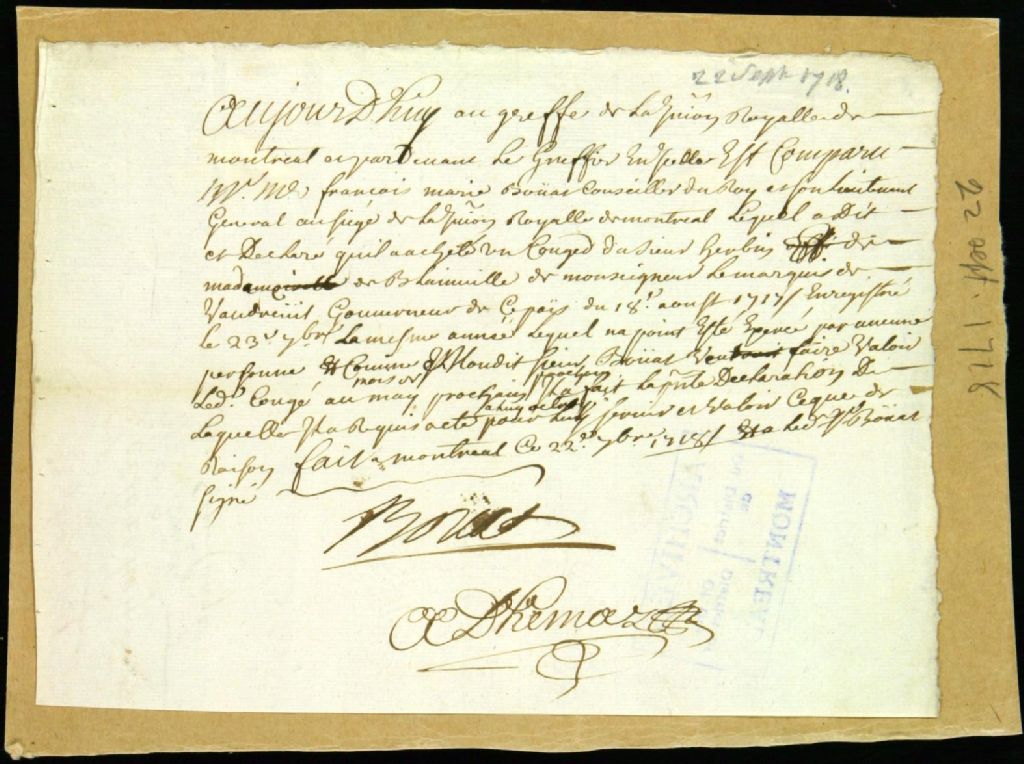 22 Sept 1718.
Aujourd'huy au greffe de La Jur.on Royalle de
montreal et par devant Le Greffier En Jcelle Est Comparu
Mr. Me françois marie Boüat Conseiller du Roy et son Lieutenant
General au siége de La Jur.on Royalle de montreal Lequel a Dit
et Declaré qu'il a acheté un Congé du sieur herbin de
madamoiselle de Blainville de monseigneur Le marquis de
Vaudreüil Gouverneur de Ce païs du 18e. aoust 1717 / Enregistré
le 23e. 7bre La mesme année Lequel na point Esté Exercé par aucune
personne Et Comme Ledit sieur Boüat faire Valoir
Led. Congé au mois de may prochain prochain Jl a fait La pnte Declaration De
Laquelle Jl a Requis acte pour Luy servir et Valoir Ce que de
Raison fait a montreal Ce 22e. 7bre 1718 / Et a led. Sr. Boüat
signé
Boüat
Adhemar
22 Sept. 1718
ARCHIVES
DU DISTRICT
de
District
of
MONTREAL